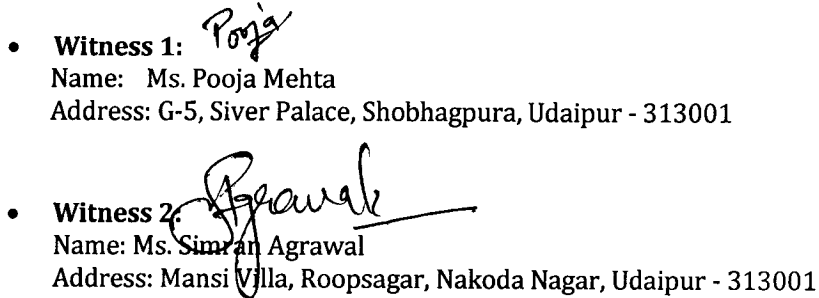 • Witness 1: Pooja
Name: Ms. Pooja Mehta
Address: G-5, Siver Palace, Shobhagpura, Udaipur - 313001
• Witness 2: Agrawal
Name: Ms. Simran Agrawal
Address: Mansi Villa, Roopsagar, Nakoda Nagar, Udaipur - 313001